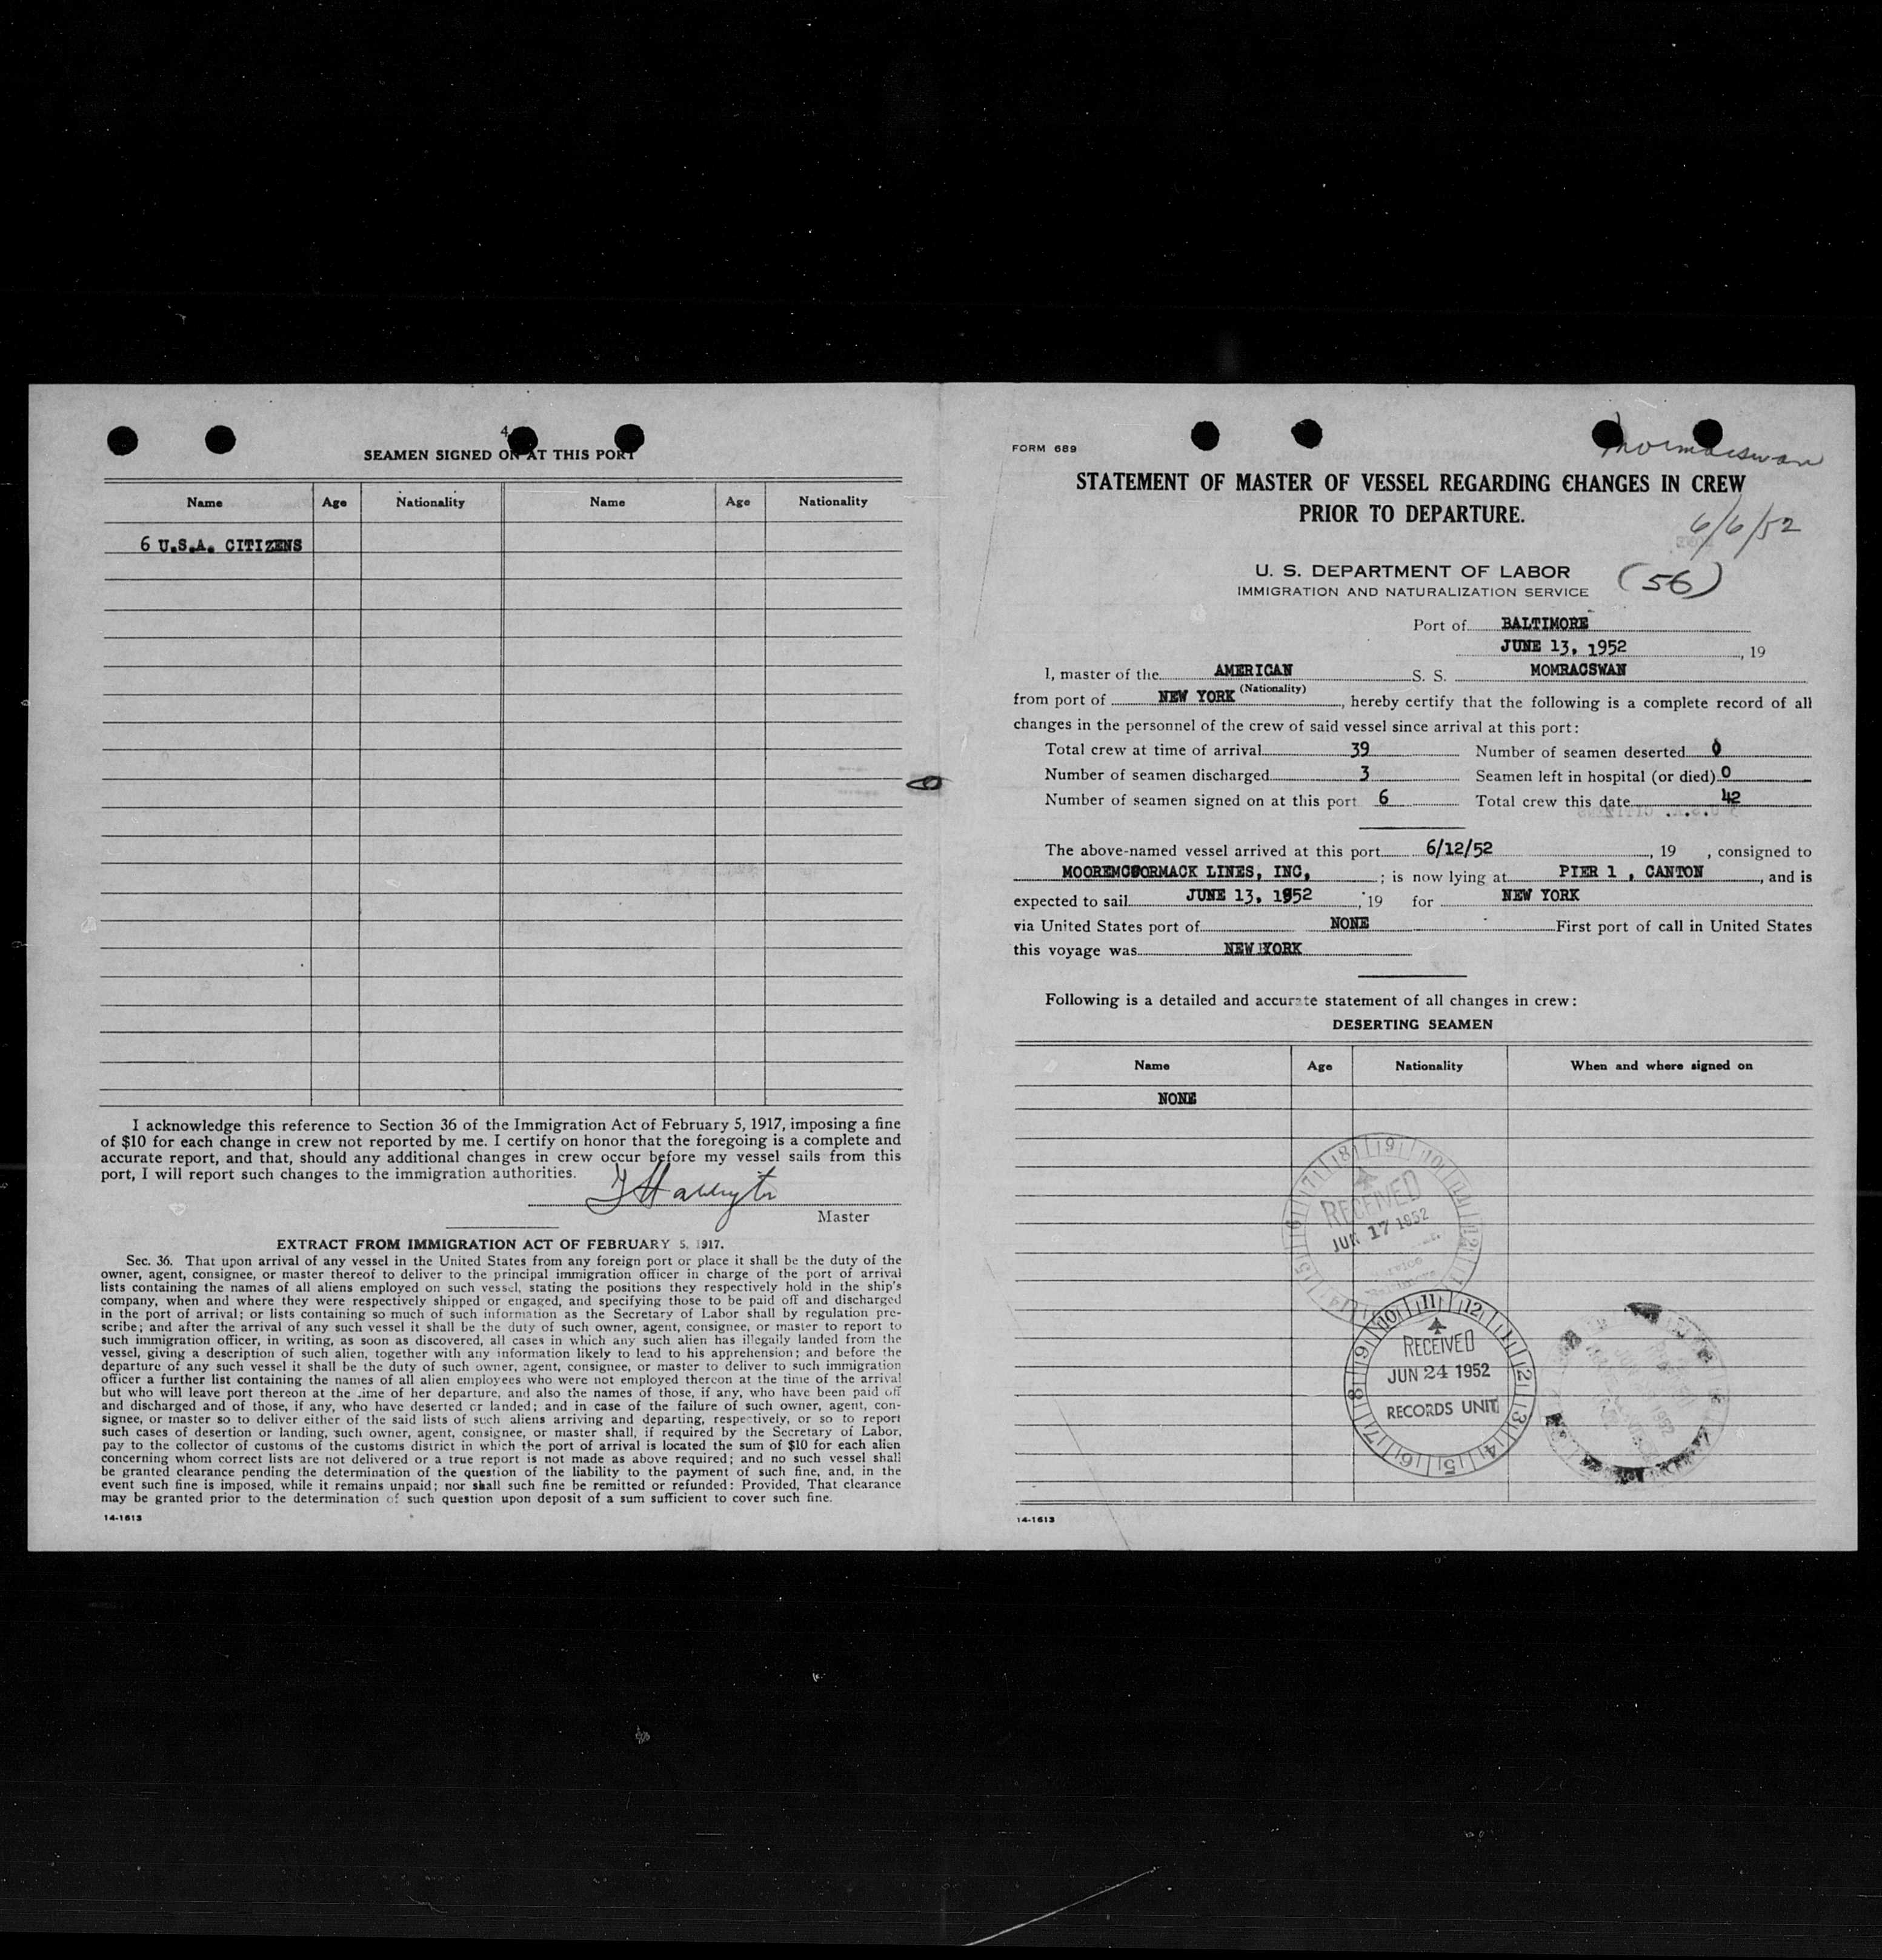 4
SEAMEN SIGNED ON AT THIS PORT
Name Age Nationality Name Age Nationality
6 U.S.A. CITIZENS
I acknowledge this reference to Section 36 of the Immigration Act of February 5, 1917, imposing a fine
of $10 for each change in crew not reported by me. I certify on honor that the foregoing is a complete and
accurate report, and that, should any additional changes in crew occur before my vessel sails from this
port, I will report such changes to the immigration authorities.
Master
EXTRACT FROM IMMIGRATION ACT OF FEBRUARY 5, 1917.
Sec. 36. That upon arrival of any vessel in the United States from any foreign port or place it shall be the duty of the
owner, agent, consignee, or master thereof to deliver to the principal immigration officer in charge of the port of arrival
lists containing the names of all aliens employed on such vessel, stating the positions they respectively hold in the ship's
company, when and where they were respectively shipped or engaged, and specifying those to be paid off and discharged
in the port of arrival; or lists containing so much of such information as the Secretary of Labor shall by regulation pre-
scribe; and after the arrival of any such vessel it shall be the duty of such owner, agent, consignee, or master to report to
such immigration officer, in writing, as soon as discovered, all cases in which any such alien has illegally landed from the
vessel, giving a description of such alien, together with any information likely to lead to his apprehension; and before the
departure of any such vessel it shall be the duty of such owner, agent, consignee, or master to deliver to such immigration
officer a further list containing the names of all alien employees who were not employed thereon at the time of the arrival
but who will leave port thereon at the time of her departure, and also the names of those, if any, who have been paid off
and discharged and of those, if any, who have deserted or landed; and in case of the failure of such owner, agent, con-
signee, or master so to deliver either of the said lists of such aliens arriving and departing, respectively, or so to report
such cases of desertion or landing, such owner, agent, consignee, or master shall, if required by the Secretary of Labor,
pay to the collector of customs of the customs district in which the port of arrival is located the sum of $10 for each alien
concerning whom correct lists are not delivered or a true report is not made as above required; and no such vessel shall
be granted clearance pending the determination of the question of the liability to the payment of such fine, and, in the
event such fine is imposed, while it remains unpaid; nor shall such fine be remitted or refunded: Provided, That clearance
may be granted prior to the determination of such question upon deposit of a sum sufficient to cover such fine.
14-1613
FORM 689
Mormacswan
STATEMENT OF MASTER OF VESSEL REGARDING CHANGES IN CREW
PRIOR TO DEPARTURE.
6/6/52
U. S. DEPARTMENT OF LABOR
(56)
IMMIGRATION AND NATURALIZATION SERVICE
Port of BALTIMORE
JUNE 13, 1952, 19
I, master of the AMERICAN S. S. MOMRACSWAN
(Nationality)
from port of NEW YORK, hereby certify that the following is a complete record of all
changes in the personnel of the crew of said vessel since arrival at this port:
Total crew at time of arrival 39 Number of seamen deserted 0
Number of seamen discharged 3 Seamen left in hospital (or died) 0
Number of seamen signed on at this port 6 Total crew this date 42
The above-named vessel arrived at this port 6/12/52, 19 , consigned to
MOOREMCCORMACK LINES, INC, ; is now lying at PIER 1 , CANTON, and is
expected to sail JUNE 13, 1952, 19 for NEW YORK
via United States port of NONE First port of call in United States
this voyage was NEW YORK
Following is a detailed and accurate statement of all changes in crew:
DESERTING SEAMEN
Name Age Nationality When and where signed on
NONE
RECEIVED
JUN 17 1952
RECEIVED
JUN 24 1952
RECORDS UNIT
14-1613